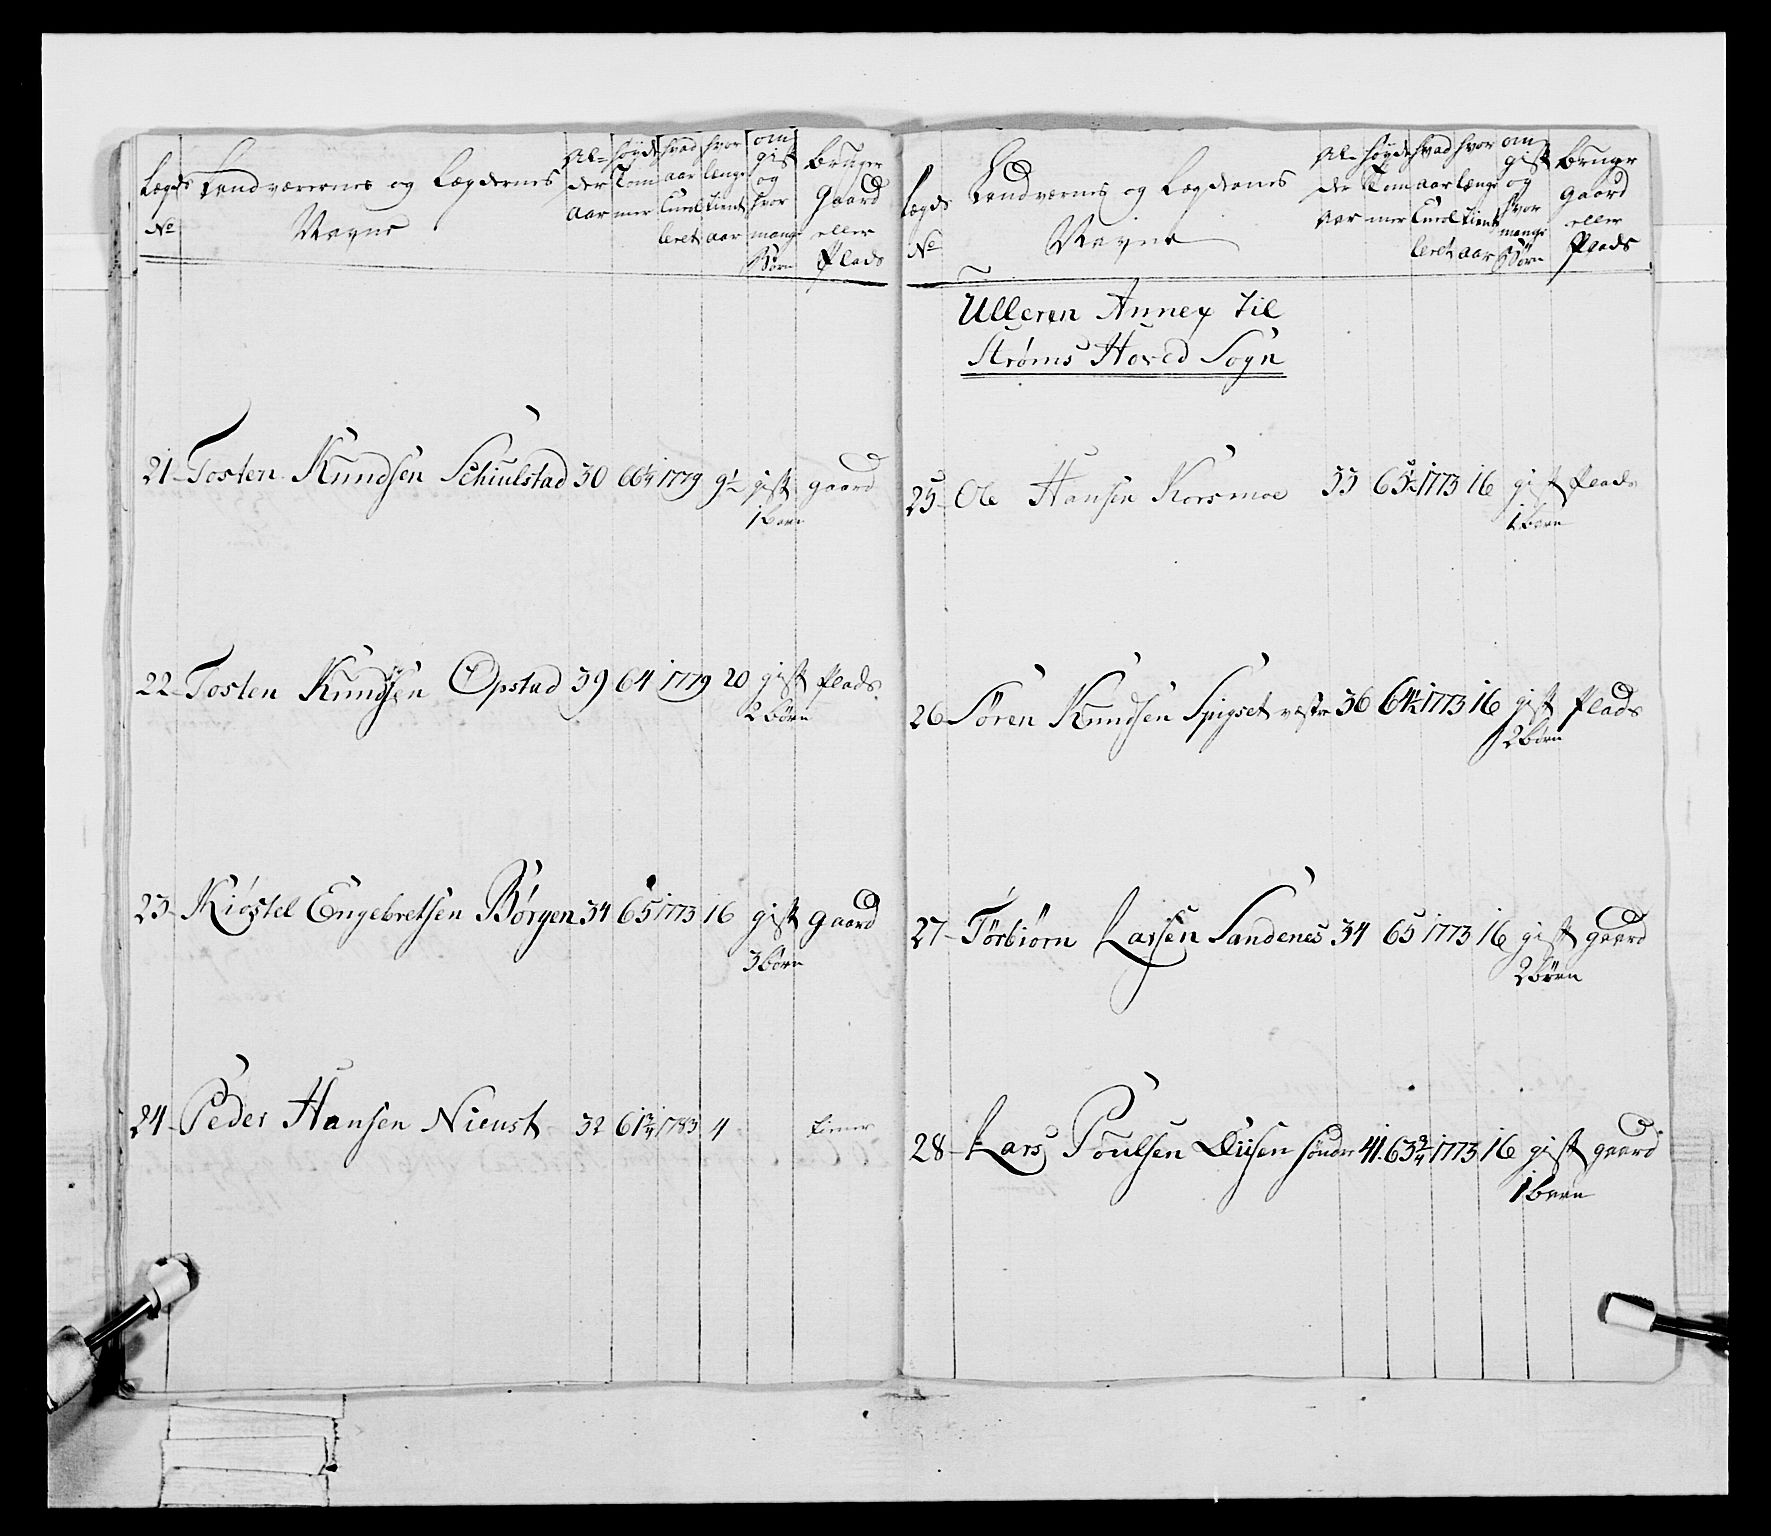 Lægds No
Landværernes og Lægdernes Navne
Alder Aar
høyde Tommer
hvad aar Enrolleret
hvor længe tient aar
om gift og hvor mange Børn
bruger Gaard eller Plads
21 Tosten Knudsen Schiulstad 30 66¼ 1779 9½ gift gaard
1 barn
22 Tosten Knudsen Opstad 39 64 1779 20 gift Plads
2 børn
23 Kiøstel Engebretsen Børgen 34 65 1773 16 gift gaard
3 børn
24 Peder Hansen Nieust 32 61¾ 1783 4 tiener
Lægds No
Landværnes og Lægdernes Navne
Alder aar
høyde Tommer
hvad aar Enrolleret
hvor længe tient aar
om gift og hvor mange Børn
bruger gaard eller Plads
Ulleren Annex til
Strøms Hoved Sogn
25 Ole Hansen Korsmoe 33 65½ 1773 16 gift Plads
1 barn
26 Søren Knudsen Spigset vestre 36 64½ 1773 16 gift Plads
2 børn
27 Törbiörn Larsen Sandenes 34 65 1773 16 gift gaard
2 børn
28 Lars Poulsen Diisen søndre 41 63¾ 1773 16 gift gaard
1 barn